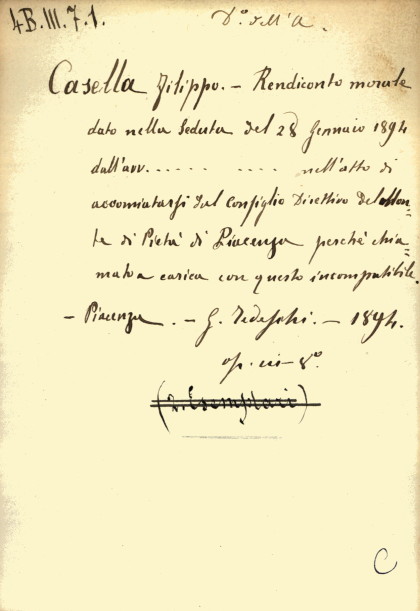 4B.III.7.1.
D.º dell'A.
Casella Filippo. - Rendiconto morale
dato nella Seduta del 28 Gennaio 1894
dall'avv. . . . . . . . . . . nell'atto di
accomiatarsi dal Consiglio Direttivo del Mon=
te di Pietà di Piacenza perchè chia=
mato a carica con questo incompatibile.
- Piacenza. - G. Tedeschi. - 1894.
op. in-8º.
(2. Esemplari)
C